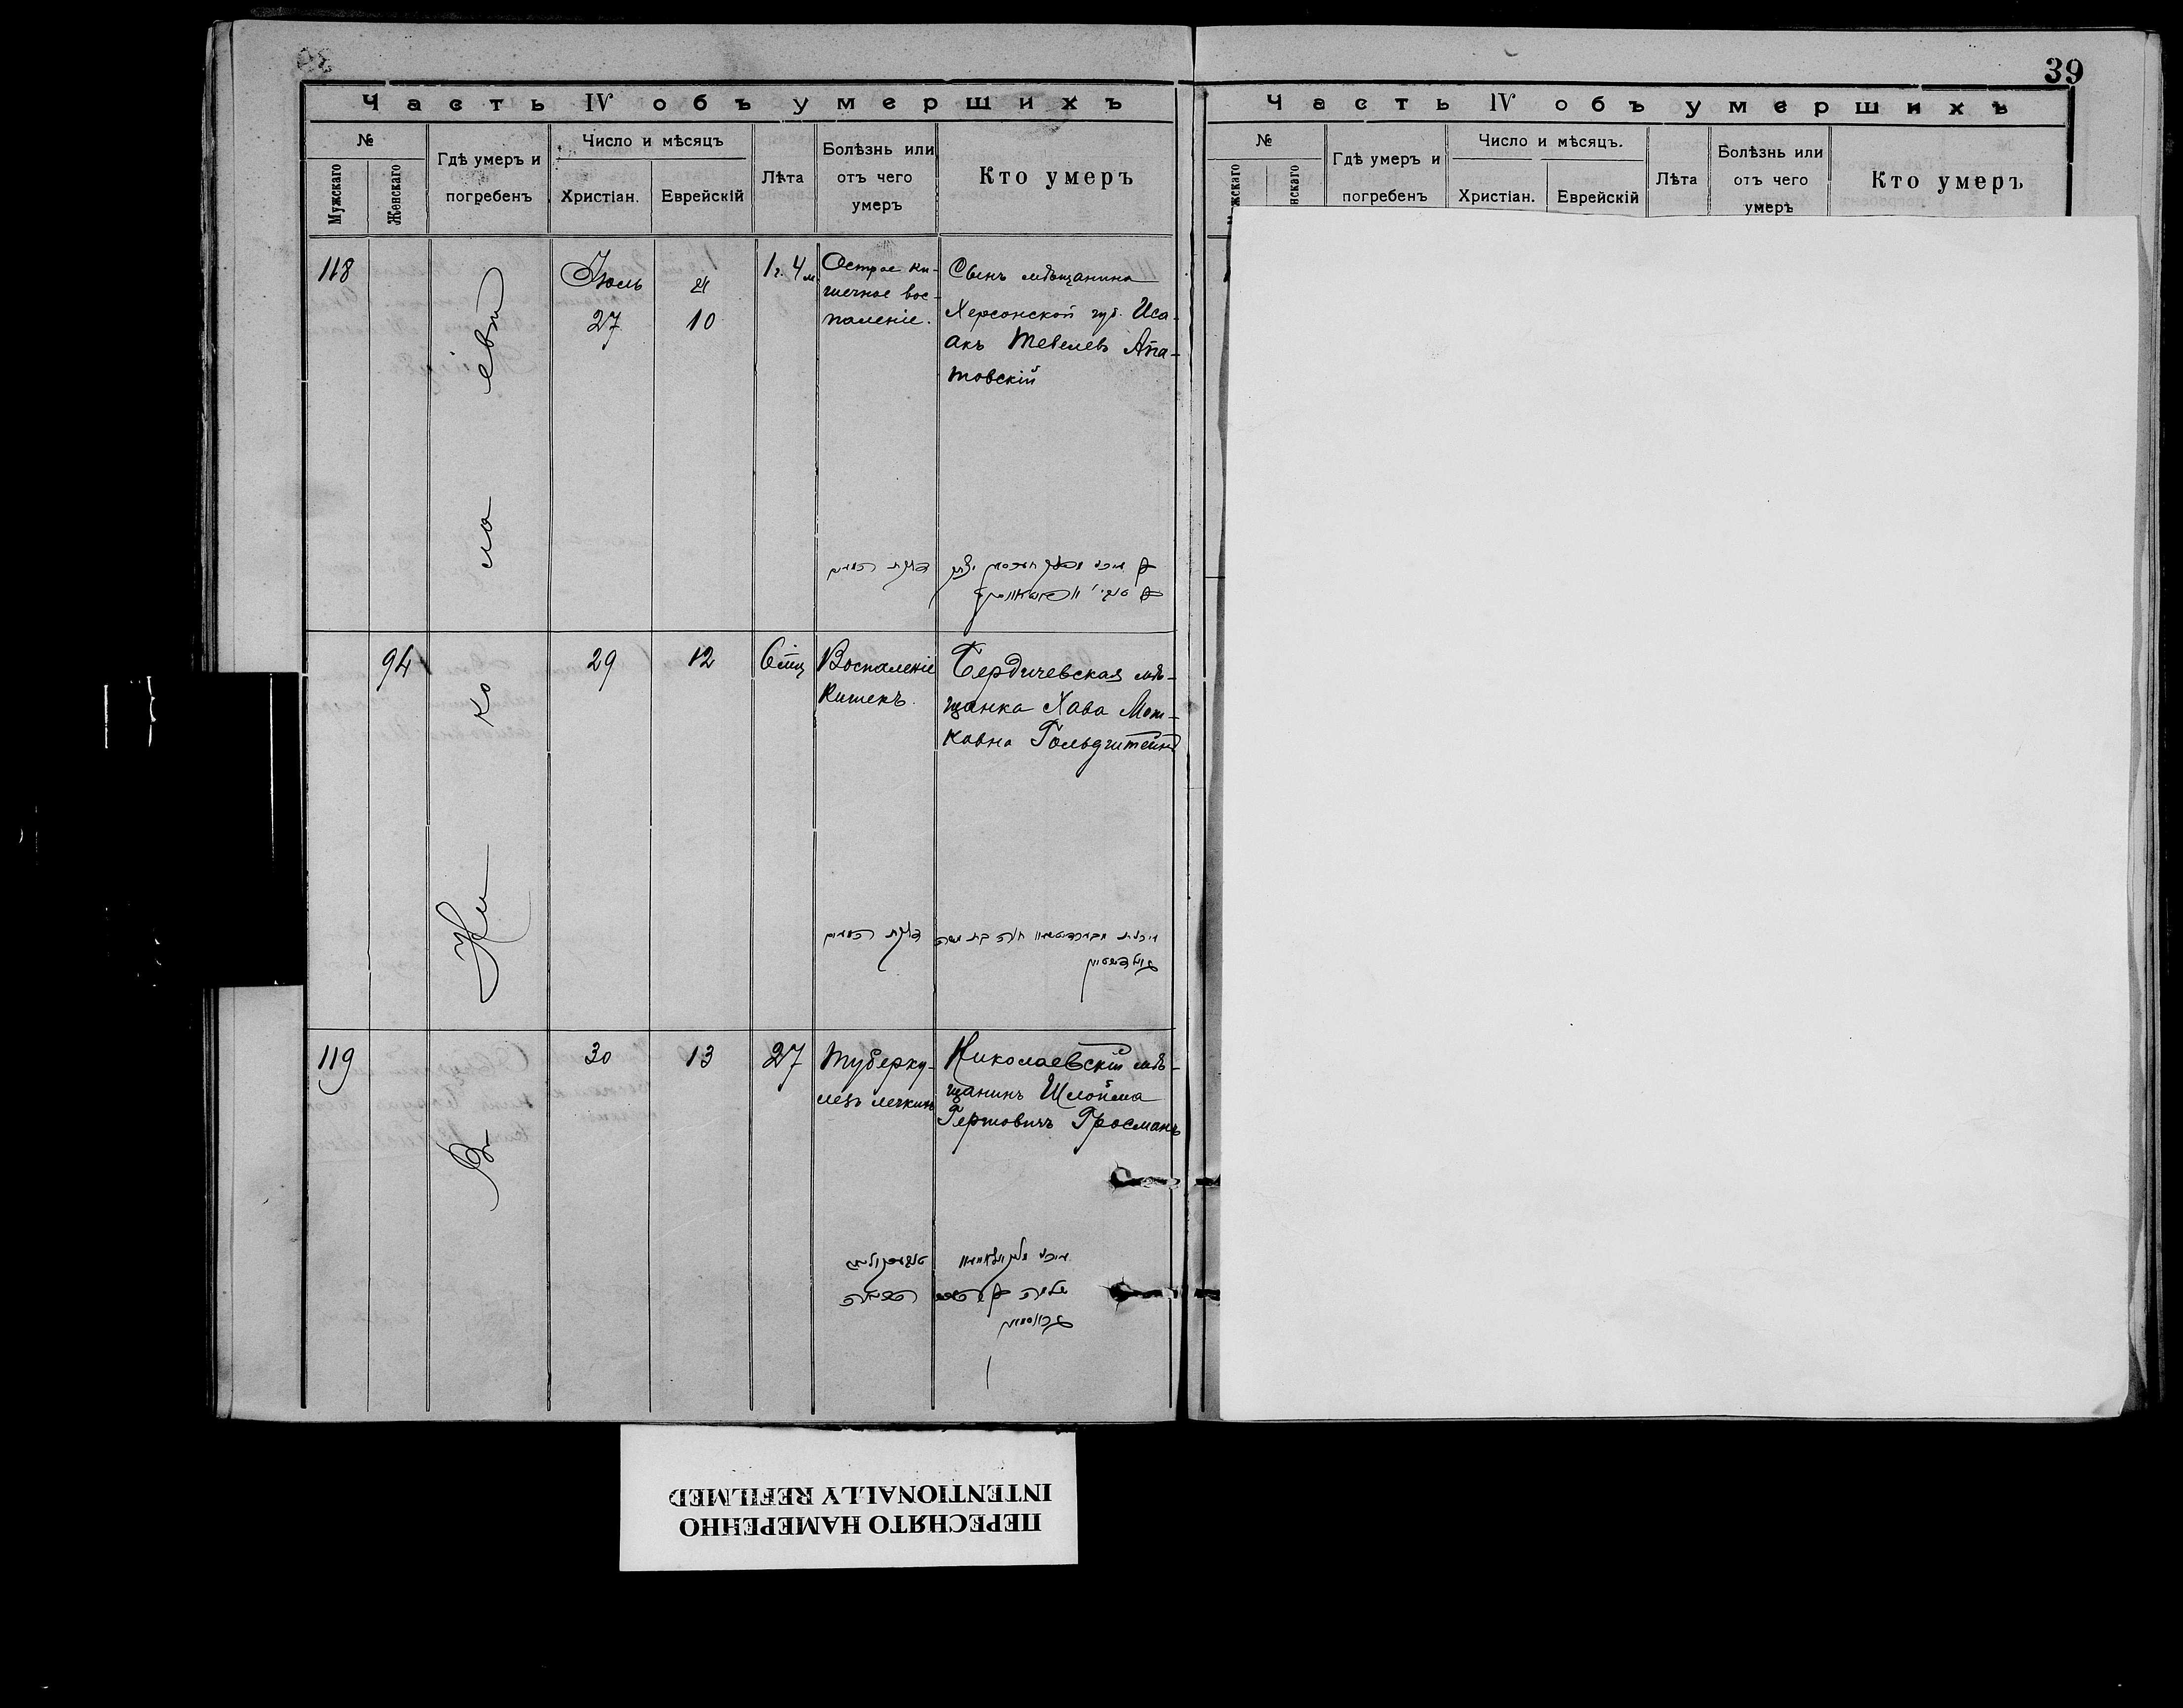 39
Часть IV объ умершихъ
№
Мужскаго
Женскаго
Гдѣ умеръ и
погребенъ
Число и мѣсяцъ
Христіан.
Еврейскій
Лѣта
Болѣзнь или
отъ чего
умеръ
Кто умеръ
Въ Николаевѣ
118
Іюль
27
10
1 г. 4 м.
Острое ки-
шечное вос-
паленіе.
Сынъ мѣщанина
Херсонской губ. Иса-
акъ Тевелевъ Апа-
товскій
דלקת המעים
94
29
12
6 мц
Воспаленіе
Кишекъ.
Бердичевская мѣ-
щанка Хава Мош-
ковна Гольдштейнъ
דלקת המעים
חוה בת משה
גולדשטיין
119
30
13
27
Туберку-
лезъ легкихъ
Николаевскій мѣ-
щанинъ Шлойма
Гершовичъ Гросманъ
Часть IV объ умершихъ
№
жскаго
нскаго
Гдѣ умеръ и
погребенъ
Число и мѣсяцъ.
Христіан.
Еврейскій
Лѣта
Болѣзнь или
отъ чего
умеръ
Кто умеръ
ПЕРЕСНЯТО НАМЕРЕННО
INTENTIONALLY REFILMED